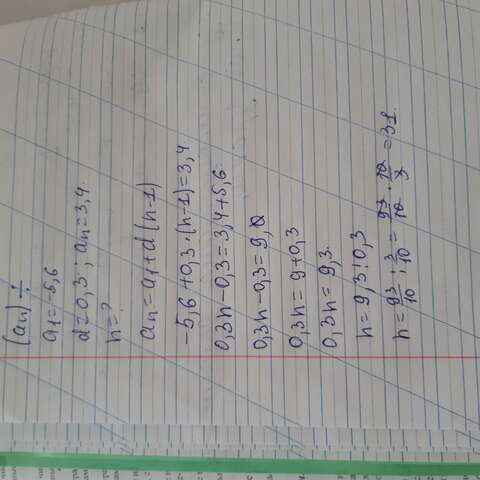 (aₙ) ÷
a₁=-5,6
d=0,3 ; aₙ=3,4.
n=?
aₙ=a₁+d(n-1)
-5,6+0,3·(n-1)=3,4
0,3n-0,3=3,4+5,6
0,3n-0,3=9,0
0,3n=9+0,3
0,3n=9,3.
n=9,3:0,3
n=93/10:3/10=93/10·10/3=31.